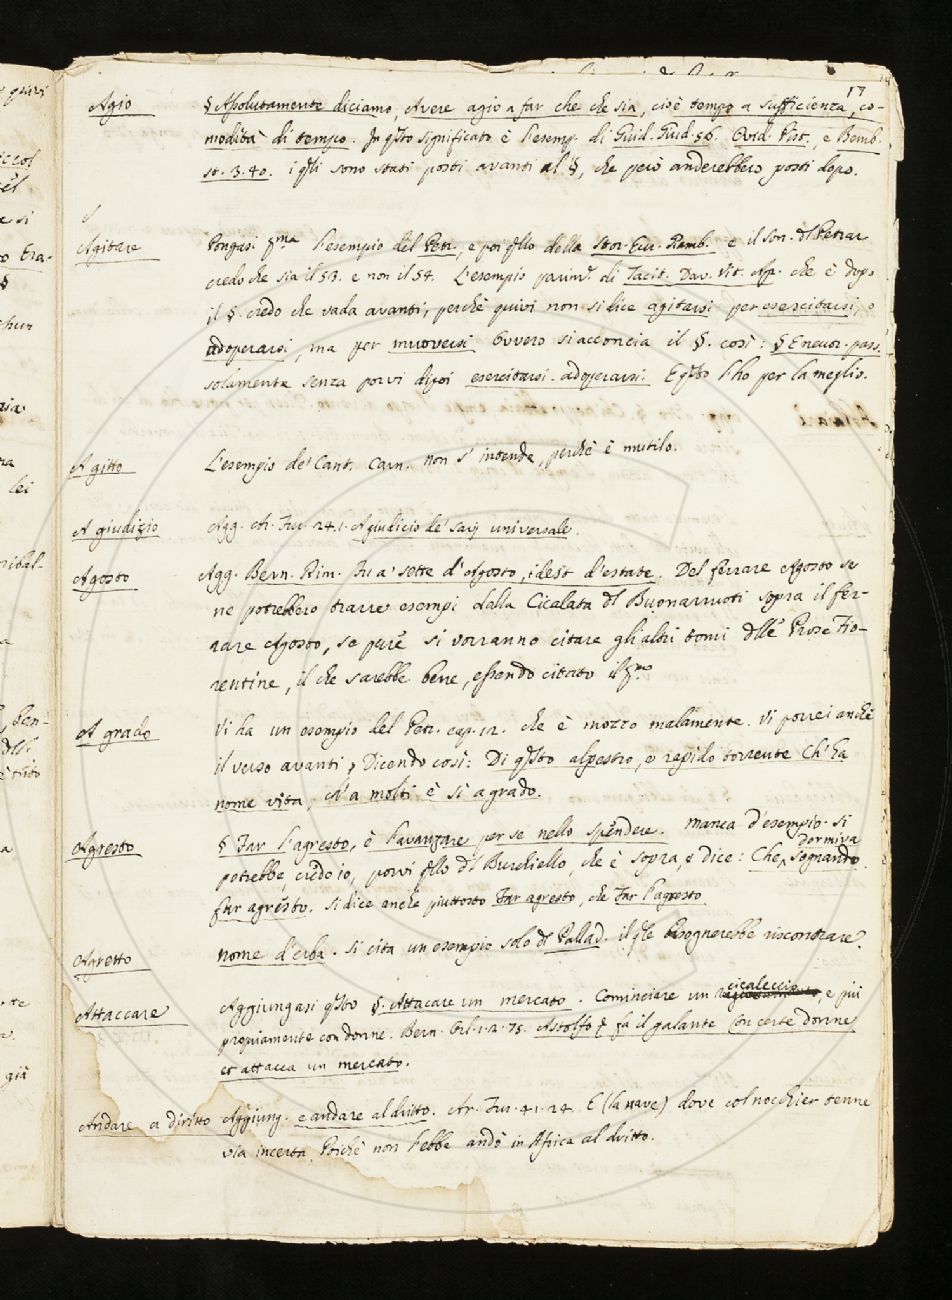 17
Agio § Assolutamente diciamo, Avere agio a far che che sia, cioè tempo a sufficienza, co-
modità di tempo. In qsto significato è l'esemp. di Guid. Giud. 56. Ovid. Pist., e Bemb.
st. 3. 40. i qli sono stati posti avanti al §, che però anderebbero posti dopo.
Agitare Pongasi pma l'esempio del Petr., e poi qllo della Stor. Eur. Giamb. e il Son. dl Petrar
credo che sia il 53. e non il 54. L'esempio parimt. di Tacit. Dav. Vit. Agr. che è dopo
il §. credo che vada avanti, perchè quivi non si dice agitarsi per esercitarsi, o
adoperarsi, ma per muoversi ovvero si acconcia il §. così: § E neutr. pass.
solamente senza porvi dipoi esercitarsi. adoperarsi. E qsto l'ho per la meglio.
A gitto L'esempio de' Cant. Carn. non s' intende, perchè è mutilo.
A giudizio Agg. Ar. Fur. 24. 1. A giudicio de' savj universale.
Agosto Agg. Bern. Rim. Fu a' sette d'Agosto, idest d'estate. Del ferrare Agosto se
ne potrebbero trarre esempi dalla Cicalata dl Buonarruoti sopra il fer-
rare Agosto, se però si vorranno citare gli altri tomi dlle Prose Fio-
rentine, il che sarebbe bene, essendo citato il pmo
A grado Vi ha un esempio del Petr. cap. 12. che è mozzo malamente. Vi porrei anche
il verso avanti, Dicendo così: Di qsto alpestro, e rapido torrente Ch'ha
nome vita, ch'a molti è sì a grado.
Agresto § Far l'agresto, è l'avanzare per se nello spendere. manca d'esempio. Si
potrebbe, credo io, porvi qllo dl Burchiello, che è sopra, e dice: Che dormiva sognando
far agresto. Si dice anche piuttosto Far agresto, che Far l'agresto.
Agretto nome d'erba. Si cita un esempio solo dl Pallad. il qle bisognerebbe riscontrare.
Attaccare Aggiungasi qsto §. Attacare un mercato. Cominciare un cicaleccio, e più
propriamente con donne. Bern. Orl. 1. 2. 75. Astolfo fa il galante Con certe donne
et attacca un mercato.
Andare a diritto Aggiung. e andare al dritto. Ar. Fur. 41. 24. E (la nave) dove col nocchier tenne
via incerta, Poichè non l'ebbe andò in Africa al dritto.